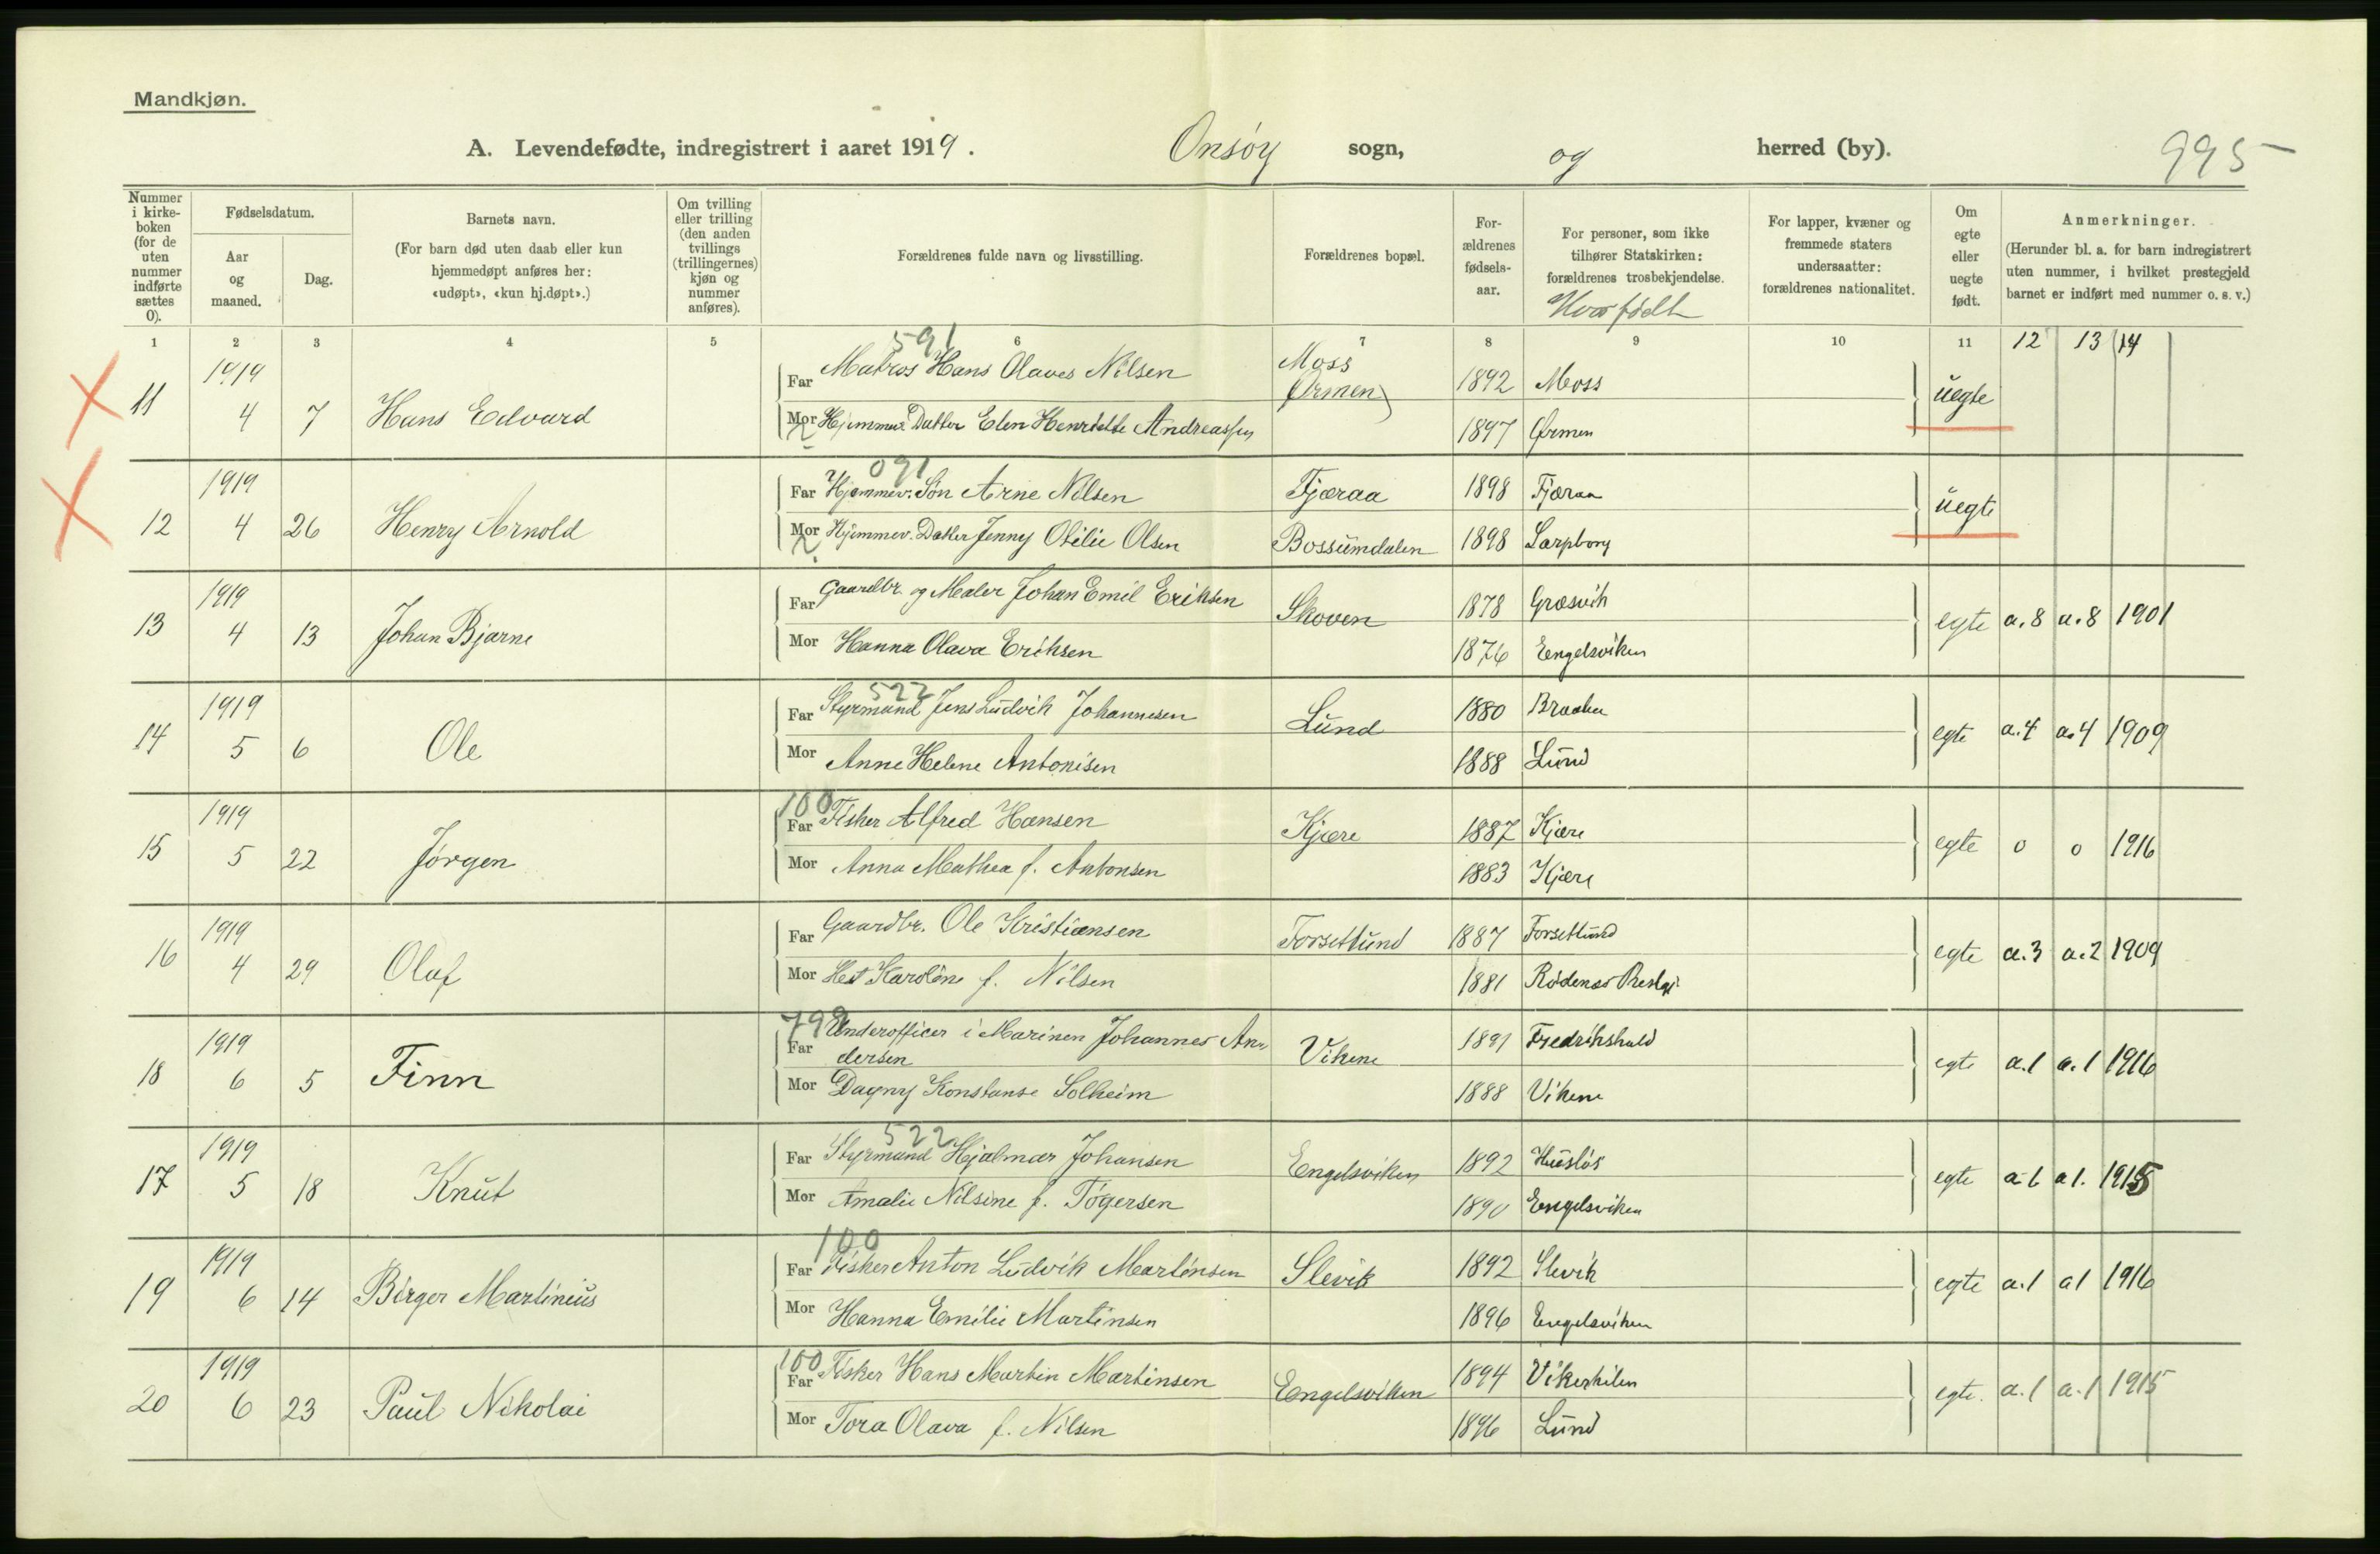 Mandkjøn.
A. Levendefødte, indregistrert i aaret 1919. Onsøy sogn, og herred (by). 995
Nummer i kirke-boken (for de uten nummer indførte sættes 0).
Fødselsdatum.
Aar og maaned.
Dag.
Barnets navn.
(For barn død uten daab eller kun hjemmedøpt anføres her: «udøpt», «kun hj.døpt».)
Om tvilling eller trilling (den anden tvillings (trillingernes) kjøn og nummer anføres).
Forældrenes fulde navn og livsstilling.
Forældrenes bopæl.
For-ældrenes fødsels-aar.
For personer, som ikke tilhører Statskirken: forældrenes trosbekjendelse.
Hvor født
For lapper, kvæner og fremmede staters undersaatter: forældrenes nationalitet.
Om egte eller uegte født.
Anmerkninger.
(Herunder bl. a. for barn indregistrert uten nummer, i hvilket prestegjeld barnet er indført med nummer o. s. v.)
1 2 3 4 5 6 7 8 9 10 11 12 13 14
591
11 1919 4 7 Hans Edvard Far Matros Hans Olaves Nilsen Moss 1892 Moss uegte
Mor Hjemmev. Datter Elen Henriette Andreassen Ørmen 1897 Ørmen
091
12 1919 4 26 Henry Arnold Far Hjemmev. Søn Arne Nilsen Fjæraa 1898 Fjæraa uegte
Mor Hjemmev. Datter Jenny Otilie Olsen Bossumdalen 1898 Sarpborg
13 1919 4 13 Johan Bjarne Far Gaardbr. og Maler Johan Emil Eriksen Skoven 1878 Græsvik egte a.8 a.8 1901
Mor Hanna Olava Eriksen 1876 Engelsviken
522
14 1919 5 6 Ole Far Styrmand Jens Ludvik Johannesen Lund 1880 Braaten egte a.4 a.4 1909
Mor Anne Helene Antonisen 1888 Lund
100
15 1919 5 22 Jørgen Far Fisker Alfred Hansen Kjære 1887 Kjære egte 0 0 1916
Mor Anna Mathea f. Antonsen 1883 Kjære
16 1919 4 29 Olaf Far Gaardbr. Ole Kristiansen Forsetlund 1887 Forsetlund egte a.3 a.2 1909
Mor Karoline f. Nilsen 1881 Rødenes Prestgj.
799
18 1919 6 5 Finn Far Underofficer i Marinen Johannes An-
dersen Vikene 1891 Fredrikshald egte a.1 a.1 1916
Mor Dagny Konstanse Solheim 1888 Vikene
522
17 1919 5 18 Knut Far Styrmand Hjalmar Johansen Engelsviken 1892 Husløs egte a1 a1. 1915
Mor Amalie Nilsine f. Tøgersen 1890 Engelsviken
100
19 1919 6 14 Birger Martinius Far Fisker Anton Ludvik Martinsen Slevik 1892 Slevik egte a.1 a1 1916
Mor Hanna Emilie Martinsen 1896 Engelsviken
100
20 1919 6 23 Paul Nikolai Far Fisker Hans Martin Martinsen Engelsviken 1894 Vikerkilen egte. a.1 a.1 1915
Mor Tora Olava f. Nilsen 1896 Lund